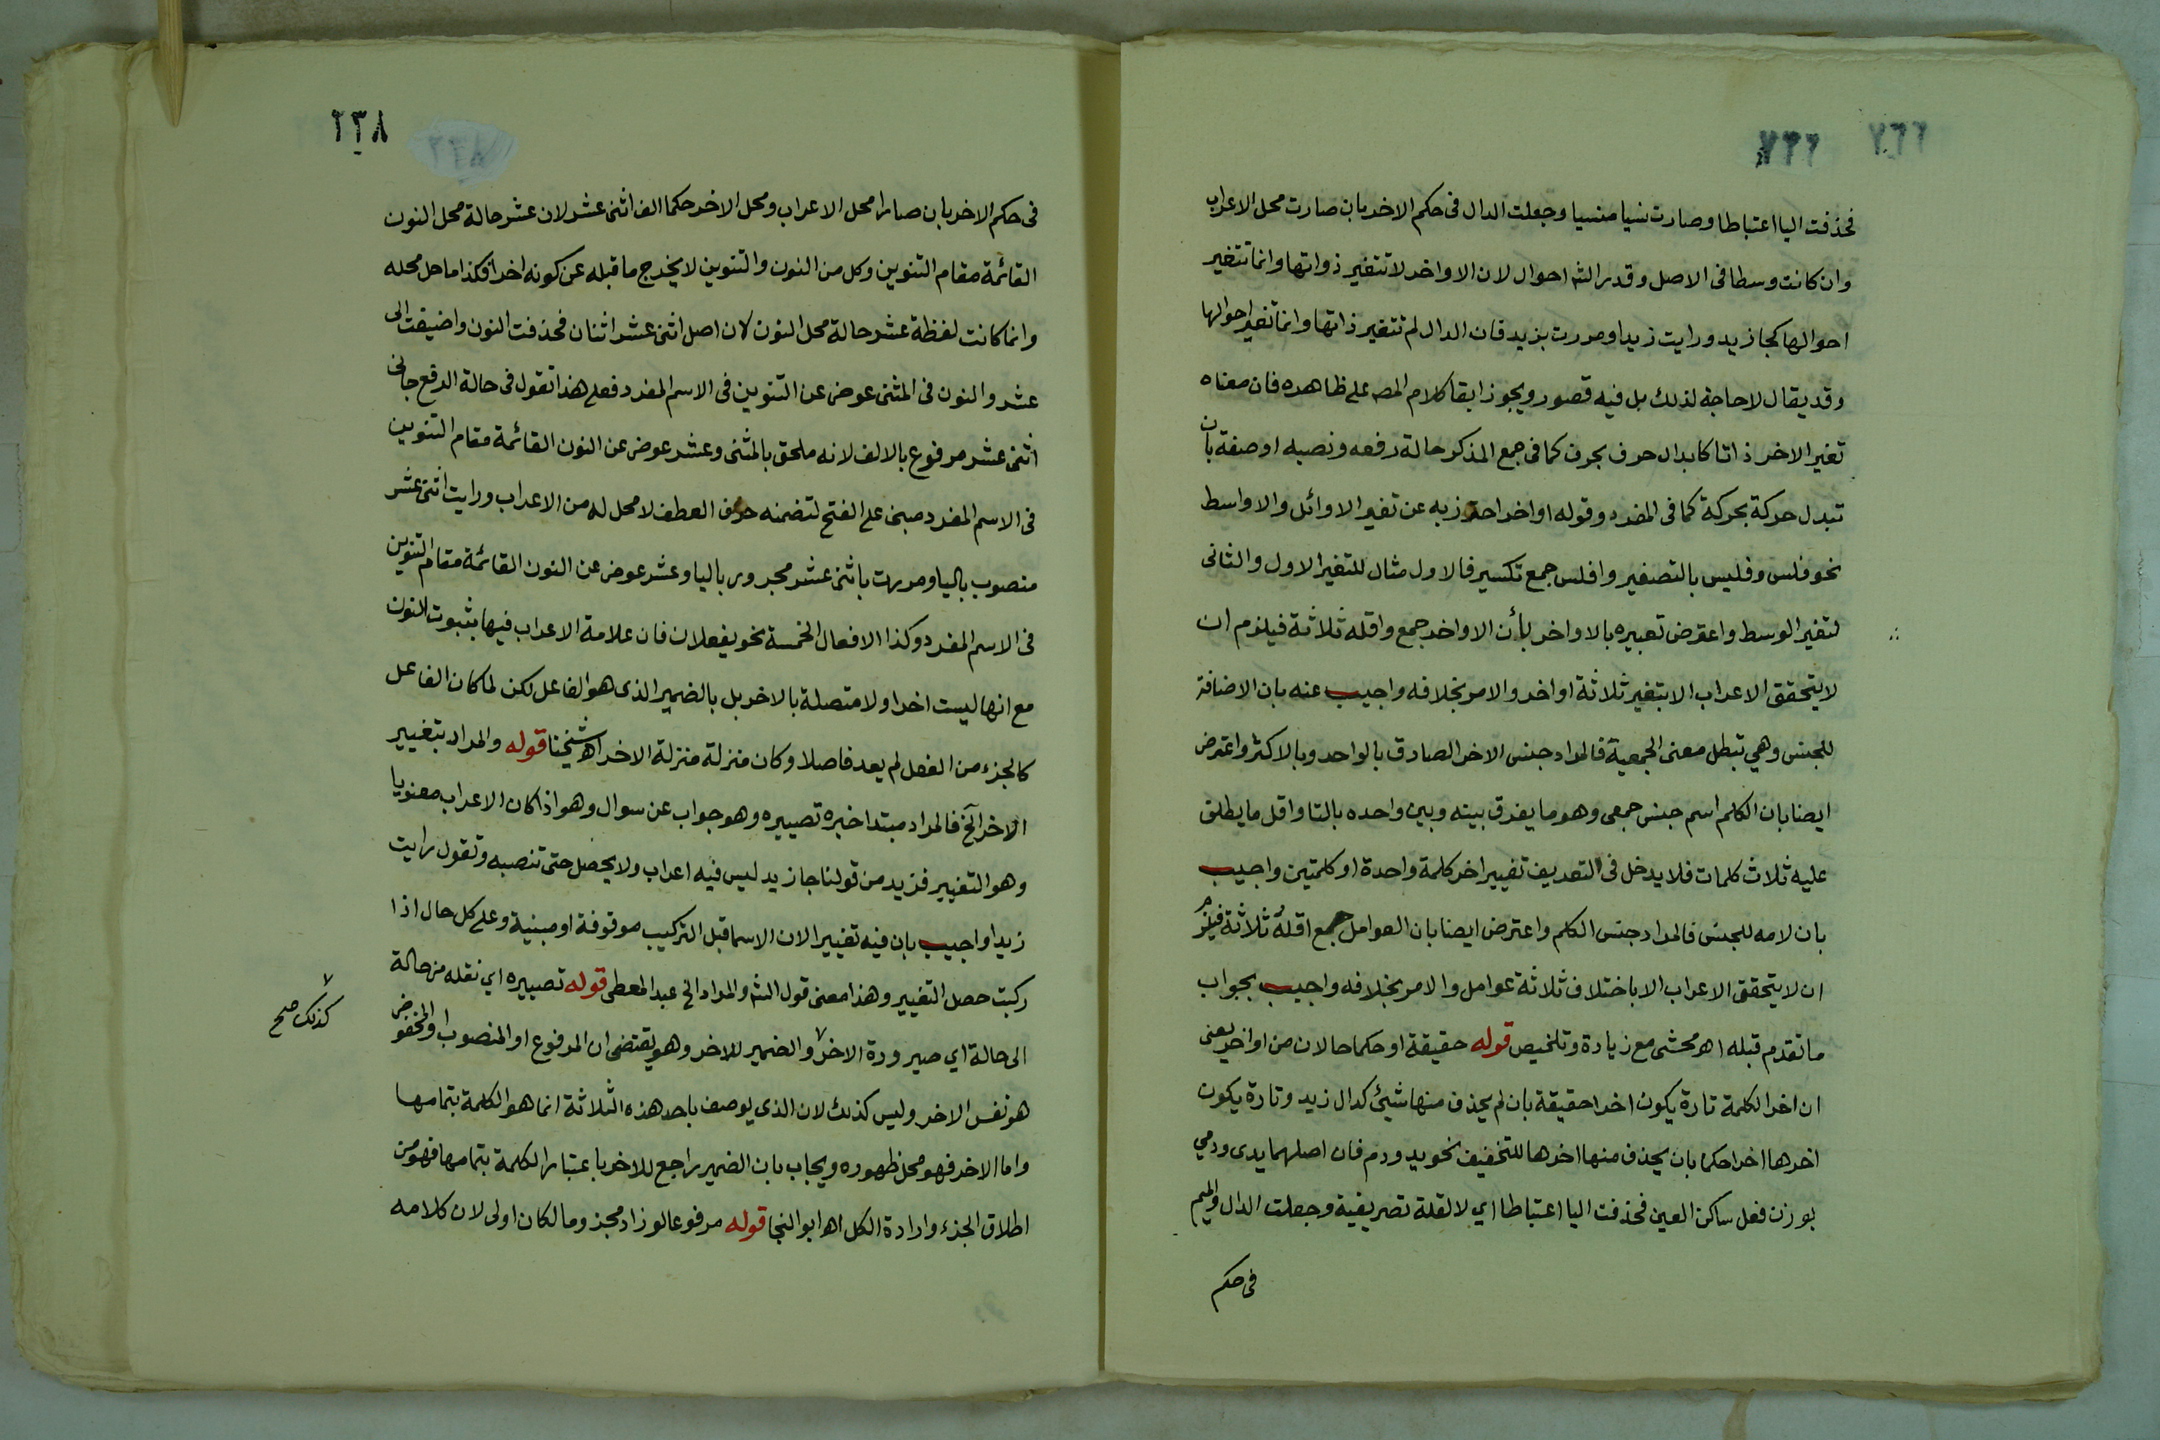 فحذفت اليا اعتباطا وصارت نسيا منسيا وجعلت الدال في حكم الاخر بان صارت محل الاعراب
وان كانت وسطا في الاصل وقدر الشه احوال لان الاواخر لا تتغير ذواتها وانما تتغير
احوالها كجا زيد ورايت زيدا ومررت بزيد فان الدال لم تتغير ذاتها وانما تغير احوالها
وقد يقال لا حاجة لذلك بل فيه قصور ويجوز ابقا كلام المصه على ظاهره فان معناه
تغير الاخر ذاتا كابدال حرف بحرف كما في جمع المذكر حالة رفعه ونصبه او صفة بان
تبدل حركة بحركة كما في المفرد وقوله اواخر احترز به عن تغير الاوائل والاواسط
نحو فلس وفليس بالتصغير وافلس جمع تكسير فالاول مثال للتغير الاول والثانى
لتغير الوسط واعترض تعبيره بالاواخر بأن الاواخر جمع واقله ثلاثة فيلزم ان
لا يتحقق الاعراب الا بتغير ثلاثة اواخر والامر بخلافه واجيب عنه بان الاضافة
للجنس وهي تبطل معنى الجمعية فالمراد جنس الاخر الصادق بالواحد وبالاكثر واعترض
ايضا بان الكلم اسم جنس جمعى وهو ما يفرق بينه وبين واحده بالتا واقل ما يطلق
عليه ثلاث كلمات فلا يدخل في التعريف تغيير اخر كلمة واحدة او كلمتين واجيب
بان لامه للجنس فالمراد جنس الكلم واعترض ايضا بان العوامل جمع اقله ثلاثة فيلزم
ان لا يتحقق الاعراب الا باختلاف ثلاثة عوامل والامر بخلافه واجيب بجواب
ما تقدم قبله اهر محشى مع زيادة وتلخيص قوله حقيقة او حكما حالان من اواخر يعنى
ان اخر الكلمة تارة يكون اخرا حقيقة بان لم يحذف منها شيئ كدال زيد وتارة يكون
اخرها اخرا حكما بان يحذف منها اخرها للتخفيف نحو يد ودم فان اصلهما يدى ودمي
بوزن فعل ساكن العين فحذفت اليا اعتباطا اي لا لعلة تصريفية وجعلت الدال والميم
في حكم
٢٣٨
في حكم الاخر بان صارا محل الاعراب ومحل الاخر حكما الف اثنى عشر لان عشر حالة محل النون
القائمة مقام التنوين وكل من النون والتنوين لا يخرج ما قبله عن كونه اخرا فكذا ما حل محله
وانما كانت لفظة عشر حالة محل النون لان اصل اثنى عشر اثنان فحذفت النون واضيفت الى
عشر والنون في المثنى عوض عن التنوين في الاسم المفرد فعلى هذا تقول في حالة الرفع جانى
اثنى عشر مرفوع بالالف لانه ملحق بالمثنى وعشر عوض عن النون القائمة مقام التنوين
في الاسم المفرد مبنى على الفتح لتضمنه حرف العطف لا محل له من الاعراب ورايت اثنى عشر
منصوب باليا ومررت باثنى عشر مجرور باليا وعشر عوض عن النون القائمة مقام التنوين
في الاسم المفرد وكذا الافعال الخمسة نحو يفعلان فان علامة الاعراب فيها بثبوت النون
مع انها ليست اخرا ولا متصلة بالاخر بل بالضمير الذى هو الفاعل لكن لما كان الفاعل
كالجزء من الفعل لم يعد فاصلا وكان منزلة منزلة الاخر اهر شيخنا قوله والمراد بتغيير
الاخر آلخ فالمراد مبتدا خبره تصييره وهو جواب عن سوال وهو اذا كان الاعراب معنويا
وهو التغيير فزيد من قولنا جا زيد ليس فيه اعراب ولا يحصل حتى تنصبه وتقول رايت
زيدا واجيب بان فيه تغييرا لان الاسما قبل التركيب موقوفة او مبنية وعلى كل حال اذا
ركبت حصل التغيير وهذا معنى قول الشه والمراد الخ عبد المعطى قوله تصييره اي نقله من حالة
الى حالة اي صيرورة الاخر والضمير للاخر وهو يقتضى ان المرفوع او المنصوب او المخفوض
كذلك صح
هو نفس الاخر وليس كذلك لان الذى يوصف باحد هذه الثلاثة انما هو الكلمة بتمامها
واما الاخر فهو محل ظهوره ويجاب بان الضمير راجع للاخر باعتبار الكلمة بتمامها فهو من
اطلاق الجزء وارادة الكل اهر ابو النجا قوله مرفوعا لو زاد مجزوما لكان اولى لان كلامه